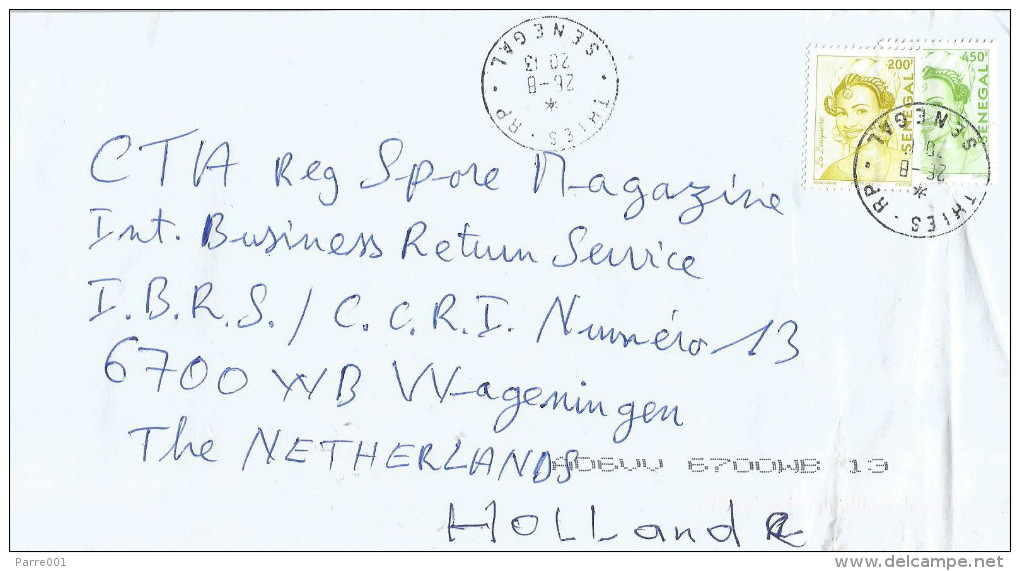 SENEGAL
26-8
20 13
*
THIES-RP
200F
La Linguère
SENEGAL
450F
SENEGAL
SENEGAL
26-8
20
*
THIES-RP
CTA Reg Spore Magazine
Int. Business Return Service
I.B.R.S. / C.C.R.I. Numéro 13
6700 WB Wageningen
The NETHERLANDS
6700WB 13
HOLLand
Parre001
www.delcampe.net